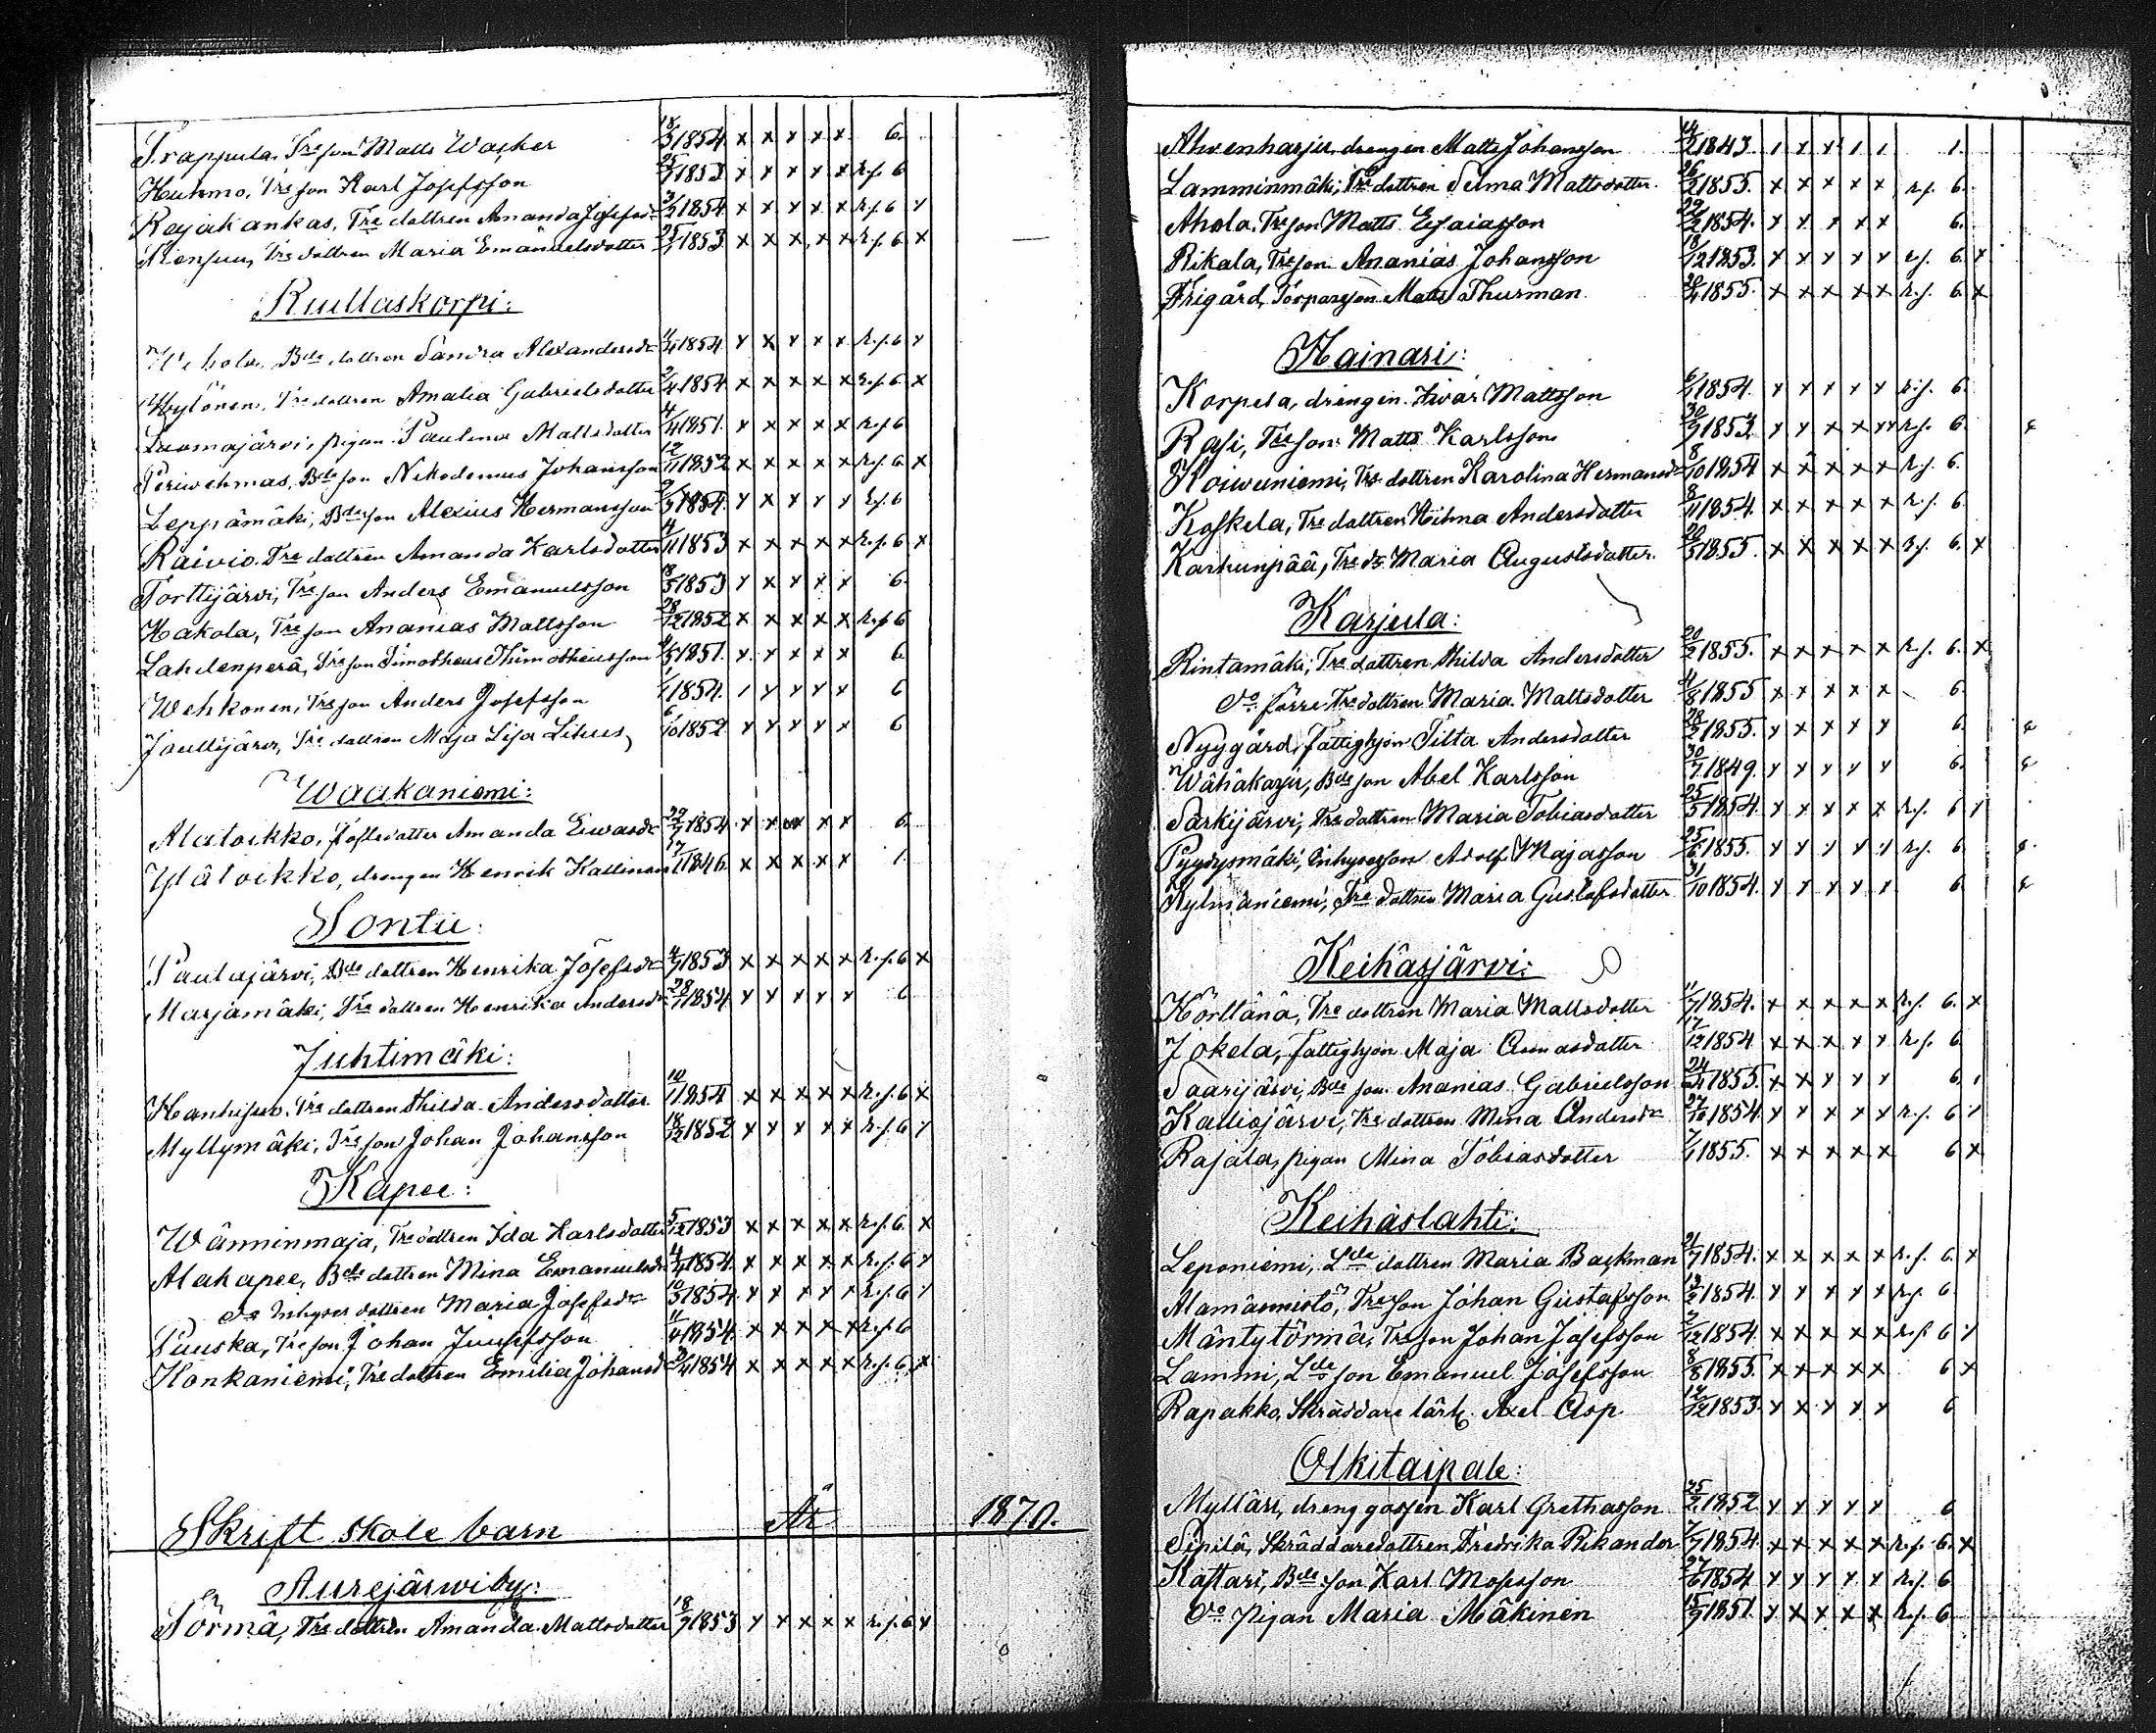 Trappula, Tre son Matts Wasker 18/3 1854 x x x x x 6.
Huhmo, Tre son Karl Josefsson 25/3 1853 x x x x x R.f. 6
Rajakankas, Tre dottren Amanda Josefsdr 3/2 1854 x x x x x R.f. 6 x
Tre dottren Maria Emanuelsdotter 25/7 1853 x x x x x R.f. 6 x
Rullaskorpi:
Bde dottren Sandra Alexandersdr 1854 x x x x x R.f. 6 x
Hylönen, Tre dottren Amalia Gabrielsdotter 2/4 1854 x x x x x R.f. 6 x
Luomajärvi, pigan Paulina Mattsdotter 4/4 1851. x x x x x R.f. 6
Bde son Nikodemus Johansson 12/11 1852 x x x x x R.f. 6 x
Leppämäki, Bde son Alexius Hermansson 1854. x x x x x R.f. 6
Raivio, Tre dottren Amanda Karlsdotter 4/11 1853 x x x x x R.f. 6 x
Torttijärvi, Tre son Anders Emanuelsson 18/5 1853 x x x x x 6.
Hakola, Tre son Ananias Mattsson 28/12 1852 x x x x x R.f. 6
Lahdenperä, Tre son Timotheus Thimotheusson 1851. x x x x x 6.
Wehkonen, Tre son Anders Josefsson 1854. x x x x x 6
Joullijärvi, Tre dottren Maja Lisa Litius 6/10 1852 x x x x x 6
Waakaniemi:
Alatoikko, dotter Amanda Ewasdr 29/7 1854 x x x x x 6.
Ylätoikko, drengen Henrik Kallinen 17/11 1846. x x x x x 1.
Sontu:
Paulajärvi, Bde dottren Henrika Josefsdr 1853 x x x x x R.f. 6 x
Marjamäki, Tre dottren Henrika Andersdr 28/7 1854 x x x x x 6
Juhtimäki:
Tre dottren Hilda Andersdotter 10/1 1854 x x x x x R.f. 6 x
Myllymäki, Tre son Johan Johansson 18/12 1852 x x x x x R.f. 6 x
Kapee:
Wänninmaja, Tre dottren Ida Karlsdotter 5/12 1853 x x x x x R.f. 6. x
Alakapee, Bde dottren Mina Emanuelsdr 4/4 1854. x x x x x R.f. 6 x
do Inhyses dottren Maria Josefsdr 10/5 1854. x x x x x R.f. 6 x
Puuska, Tre son Johan Juusefsson 11/4 1854. x x x x x R.f. 6
Honkaniemi, Tre dottren Emilia Johansdr 3/4 1854 x x x x x R.f. 6 x
Skrift skole barn År 1870.
Aurejärwi by:
Törmä, Tre dottren Amanda Mattsdotter 18/7 1853 x x x x x R.f. 6 x
Ahvenharju, drengen Matts Johansson 14/2 1843. 1.
Lamminmäki, Tre dottren Selma Mattsdotter. 26/2 1855. x x x x x R.f. 6.
Ahola, Tre son Matts Esaiasson 22/2 1854. x x x x x 6.
Rikala, Tre son Ananias Johansson 18/12 1853. x x x x x R.f. 6. x
Frigård, Torpareson Matts Thurman 1855. x x x x x R.f. 6. x
Hainari:
Korpela, drengen Iwar Mattsson 6/1 1854. x x x x x R.f. 6.
Rasi, Tre son Matts Karlsson 30/9 1852 x x x x x R.f. 6.
Koiwuniemi, Tre dottren Karolina Hermansdr 8/10 1854 x x x x x R.f. 6.
Koskela, Tre dottren Hilma Andersdotter 8/11 1854. x x x x x R.f. 6.
Karhunpää, Tre dr Maria Augustsdotter. 20/5 1855. x x x x x R.f. 6. x
Karjula:
Rintamäki, Tre dottren Hilda Andersdotter 20/2 1855. x x x x x R.f. 6. x
do förre Tre dottren Maria Mattsdotter 4/8 1855 x x x x x 6.
Nyygård, fattighjon Tilta Andersdotter 28/3 1855. x x x x x 6.
Wähäkarju, Bde son Abel Karlsson 30/7 1849. x x x x x 6.
Särkijärvi, Tre dottren Maria Tobiasdotter 25/5 1854. x x x x x R.f. 6 x
Pyydysmäki, Inhysesson Adolf Majasson 25/6 1855. x x x x x R.f. 6
Kylmäniemi, Tre dottren Maria Gustafsdotter 31/10 1854. x x x x x 6
Keihäsjärvi:
Körttänä, Tre dottren Maria Mattsdotter 11/7 1854. x x x x x R.f. 6. x
Jokela, fattighjon Maja 17/12 1854 x x x x x R.f. 6
Saarijärvi, Bde son Ananias Gabrielsson 1855. x x x x x 6.
Kalliojärvi, Tre dottren Mina Andersdr 27/10 1854 x x x x x R.f. 6 x
Rajala, pigan Mina Tobiasdotter 1855. x x x x x 6 x
Keihäslahti:
Leponiemi, Lde dottren Maria Backman 21/7 1854. x x x x x R.f. 6. x
Tre son Johan Gustafsson 1854. x x x x x R.f. 6
Mäntytörmä, Tre son Johan Josefsson 2/12 1854. x x x x x R.f. 6 x
Lammi, Lde son Emanuel Josefsson 8/8 1855. x x x x x 6 x
Rapakko, Skräddare lärl. Axel Asp 12/12 1853. x x x x x 6
Olkitaipale:
Mylläri, dreng gossen Karl Grethasson 25/2 1852 x x x x x 6
Sipilä, Skräddaredottren Fredrika Rikander 7/7 1854. x x x x x R.f. 6. x
Kattari, Bde son Karl Mosesson 27/6 1854 x x x x x R.f. 6
do pigan Maria Mäkinen 15/9 1851. x x x x x R.f. 6